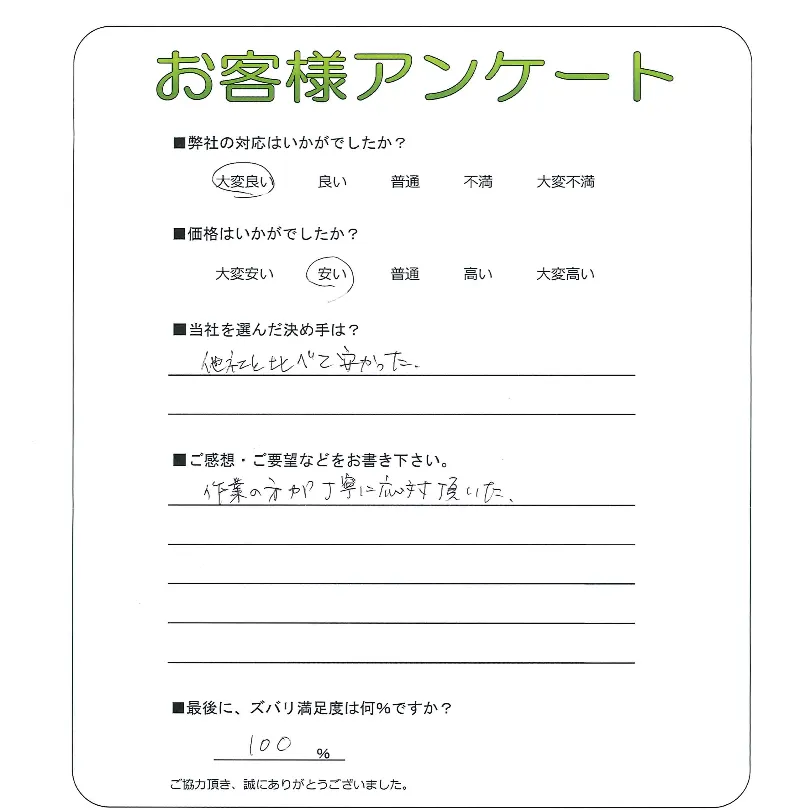 お客様アンケート
■弊社の対応はいかがでしたか?
大変良い 良い 普通 不満 大変不満
■価格はいかがでしたか?
大変安い 安い 普通 高い 大変高い
■当社を選んだ決め手は?
他社と比べて安かった.
■ご感想・ご要望などをお書き下さい。
作業の方が丁寧に応対頂いた、
■最後に、ズバリ満足度は何%ですか?
100 %
ご協力頂き、誠にありがとうございました。